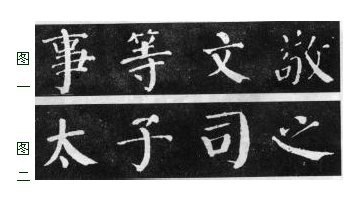 图一
事等文敬
图二
太子司之